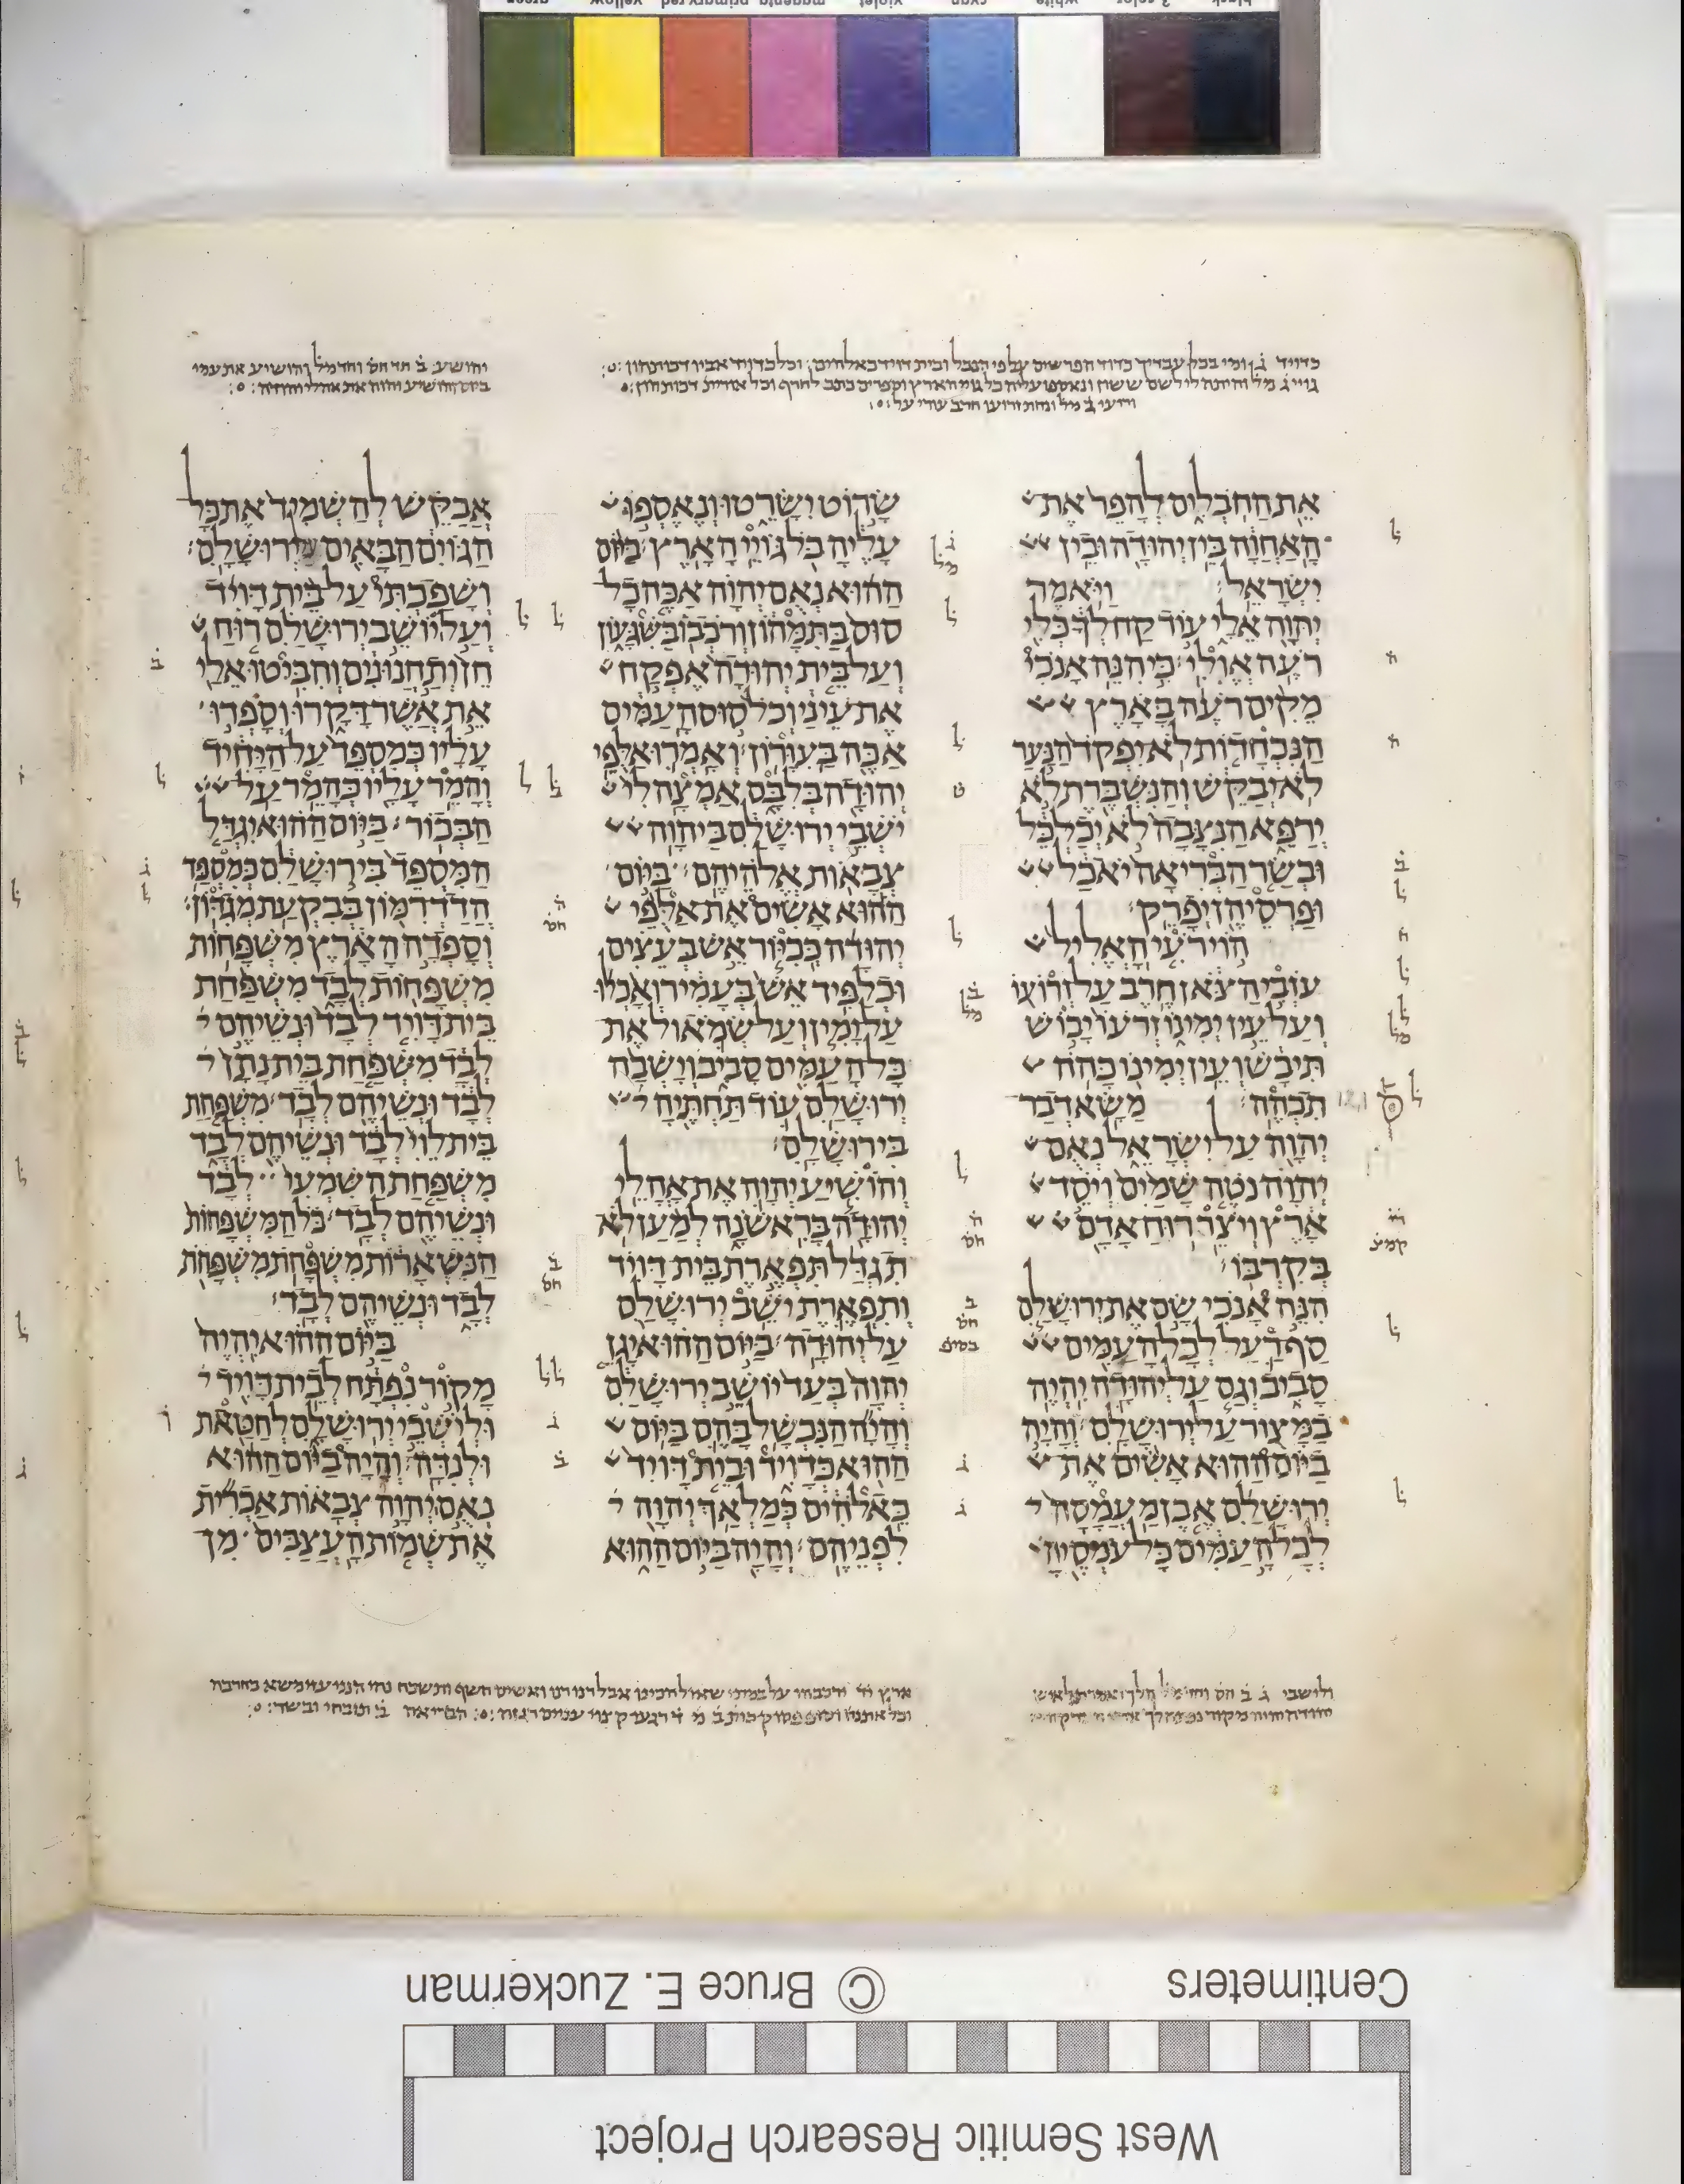 אֶת הַחֹבְלִים לְהָפֵר אֶת
הָאַחֲוָה בֵּין יְהוּדָה וּבֵין
יִשְׂרָאֵל׃ וַיֹּאמֶר
יְהוָה אֵלָי עוֹד קַח לְךָ כְּלִי
רֹעֶה אֱוִלִי׃ כִּי הִנֵּה אָנֹכִי
מֵקִים רֹעֶה בָּאָרֶץ
הַנִּכְחָדוֹת לֹא יִפְקֹד הַנַּעַר
לֹא יְבַקֵּשׁ וְהַנִּשְׁבֶּרֶת לֹא
יְרַפֵּא הַנִּצָּבָה לֹא יְכַלְכֵּל
וּבְשַׂר הַבְּרִיאָה יֹאכַל
וּפַרְסֵיהֶן יְפָרֵק׃
הוֹי רֹעִי הָאֱלִיל
עֹזְבִי הַצֹּאן חֶרֶב עַל זְרוֹעוֹ
וְעַל עֵין יְמִינוֹ זְרֹעוֹ יָבוֹשׁ
תִּיבָשׁ וְעֵין יְמִינוֹ כָּהֹה
תִכְהֶה׃ מַשָּׂא דְבַר
יְהוָה עַל יִשְׂרָאֵל נְאֻם
יְהוָה נֹטֶה שָׁמַיִם וְיֹסֵד
אָרֶץ וְיֹצֵר רוּחַ אָדָם
בְּקִרְבּוֹ׃
הִנֵּה אָנֹכִי שָׂם אֶת יְרוּשָׁלִַם
סַף רַעַל לְכָל הָעַמִּים
סָבִיב וְגַם עַל יְהוּדָה יִהְיֶה
בַמָּצוֹר עַל יְרוּשָׁלִָם׃ וְהָיָה
בַיּוֹם הַהוּא אָשִׂים אֶת
יְרוּשָׁלִַם אֶבֶן מַעֲמָסָה
לְכָל הָעַמִּים כָּל עֹמְסֶיהָ
שָׂרוֹט יִשָּׂרֵטוּ וְנֶאֶסְפוּ
עָלֶיהָ כֹּל גּוֹיֵי הָאָרֶץ׃ בַּיּוֹם
הַהוּא נְאֻם יְהוָה אַכֶּה כָל
סוּס בַּתִּמָּהוֹן וְרֹכְבוֹ בַּשִּׁגָּעוֹן
וְעַל בֵּית יְהוּדָה אֶפְקַח
אֶת עֵינַי וְכֹל סוּס הָעַמִּים
אַכֶּה בַּעִוָּרוֹן׃ וְאָמְרוּ אַלֻּפֵי
יְהוּדָה בְּלִבָּם אַמְצָה לִי
יֹשְׁבֵי יְרוּשָׁלִַם בַּיהוָה
צְבָאוֹת אֱלֹהֵיהֶם׃ בַּיּוֹם
הַהוּא אָשִׂים אֶת אַלֻּפֵי
יְהוּדָה כְּכִיּוֹר אֵשׁ בְּעֵצִים
וּכְלַפִּיד אֵשׁ בְּעָמִיר וְאָכְלוּ
עַל יָמִין וְעַל שְׂמֹאול אֶת
כָּל הָעַמִּים סָבִיב וְיָשְׁבָה
יְרוּשָׁלִַם עוֹד תַּחְתֶּיהָ
בִּירוּשָׁלִָם׃
וְהוֹשִׁיעַ יְהוָה אֶת אָהֳלֵי
יְהוּדָה בָּרִאשֹׁנָה לְמַעַן לֹא
תִגְדַּל תִּפְאֶרֶת בֵּית דָּוִיד
וְתִפְאֶרֶת יֹשֵׁב יְרוּשָׁלִַם
עַל יְהוּדָה׃ בַּיּוֹם הַהוּא יָגֵן
יְהוָה בְּעַד יוֹשֵׁב יְרוּשָׁלִַם
וְהָיָה הַנִּכְשָׁל בָּהֶם בַּיּוֹם
הַהוּא כְּדָוִיד וּבֵית דָּוִיד
כֵּאלֹהִים כְּמַלְאַךְ יְהוָה
לִפְנֵיהֶם׃ וְהָיָה בַּיּוֹם הַהוּא
אֲבַקֵּשׁ לְהַשְׁמִיד אֶת כָּל
הַגּוֹיִם הַבָּאִים עַל יְרוּשָׁלִָם׃
וְשָׁפַכְתִּי עַל בֵּית דָּוִיד
וְעַל יוֹשֵׁב יְרוּשָׁלִַם רוּחַ
חֵן וְתַחֲנוּנִים וְהִבִּיטוּ אֵלַי
אֵת אֲשֶׁר דָּקָרוּ וְסָפְדוּ
עָלָיו כְּמִסְפֵּד עַל הַיָּחִיד
וְהָמֵר עָלָיו כְּהָמֵר עַל
הַבְּכוֹר׃ בַּיּוֹם הַהוּא יִגְדַּל
הַמִּסְפֵּד בִּירוּשָׁלִַם כְּמִסְפַּד
הֲדַדְרִמּוֹן בְּבִקְעַת מְגִדּוֹן׃
וְסָפְדָה הָאָרֶץ מִשְׁפָּחוֹת
מִשְׁפָּחוֹת לְבָד מִשְׁפַּחַת
בֵּית דָּוִיד לְבָד וּנְשֵׁיהֶם
לְבָד מִשְׁפַּחַת בֵּית נָתָן
לְבָד וּנְשֵׁיהֶם לְבָד׃ מִשְׁפַּחַת
בֵּית לֵוִי לְבָד וּנְשֵׁיהֶם לְבָד
מִשְׁפַּחַת הַשִּׁמְעִי לְבָד
וּנְשֵׁיהֶם לְבָד׃ כֹּל הַמִּשְׁפָּחוֹת
הַנִּשְׁאָרוֹת מִשְׁפָּחֹת מִשְׁפָּחֹת
לְבָד וּנְשֵׁיהֶם לְבָד׃
בַּיּוֹם הַהוּא יִהְיֶה
מָקוֹר נִפְתָּח לְבֵית דָּוִיד
וּלְיֹשְׁבֵי יְרוּשָׁלִָם לְחַטַּאת
וּלְנִדָּה׃ וְהָיָה בַיּוֹם הַהוּא
נְאֻם יְהוָה צְבָאוֹת אַכְרִית
אֶת שְׁמוֹת הָעֲצַבִּים מִן
Centimeters
© Bruce E. Zuckerman
West Semitic Research Project